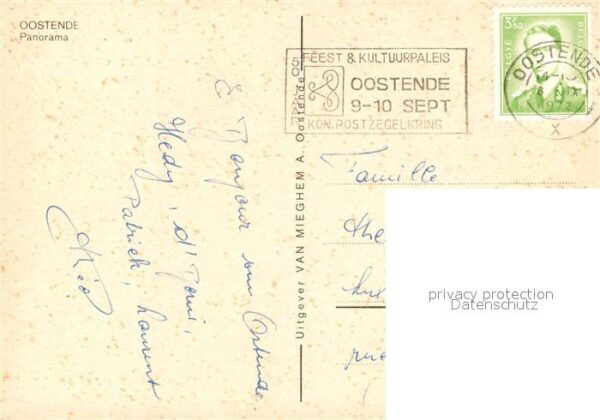 OOSTENDE
Panorama
FEEST & KULTUURPALEIS
50 JAAR
OOSTENDE
9-10 SEPT
KON. POSTZEGELKRING
3F50
BELGIE
OOSTENDE
1972
X
Uitgever VAN MIEGHEM A. Oostende
Bonjour
Hedy, d'
Patrick, Laurent
Famille
privacy protection
Datenschutz